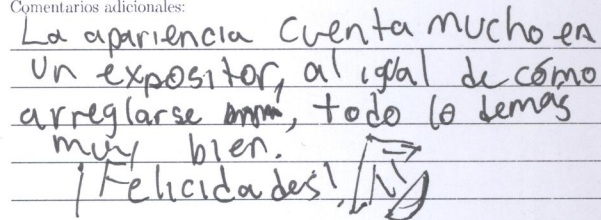 Comentarios adicionales:
La apariencia cuenta mucho en
un expositor, al igual de cómo
arreglarse, todo lo demás
muy bien.
¡Felicidades!